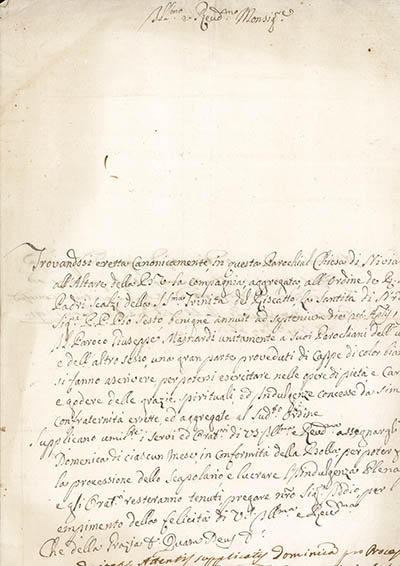 Ill.mo e Reud.mo Monsig.re
Trovandosi eretta Canonicamente in questa Parochial Chiesa di Nivia
all'Altare della la compagnia aggregata all'Ordine de
Padri Scalzi della SS.ma Trinità del Riscatto La Santità di
P.P. Pio Sesto benigne annuit ad septennium
Paroco Giuseppe Majnardi unitamente a Suoi Parochiani dell'
e dell'altro sesso una gran parte proveduti di Cappe di color bia
si fanno ascrivere per potersi esercitare nelle opere di pietà e Car
e godere delle grazie spirituali, ed Indulgenze concesse da sim
Confraternità erette, ed aggregate al Sud.to Ordine
Supplicano umil.te i servi ed Orat.ri di V.S. Ill.ma e Reud.ma assegnargli
Domenica di ciascun Mese in Conformità della Bolla per poter
la processione dello Scapolario e lucrare l'Indulgenza Plena
e gl'Orat.ri resteranno tenuti pregare nr̃o Sig.re Iddio per l
empimento della felicità di V.S. Ill.ma e Reud.ma
Che della Grazia & Quam Deus &
Attentis supplicatis dominica pro Proces